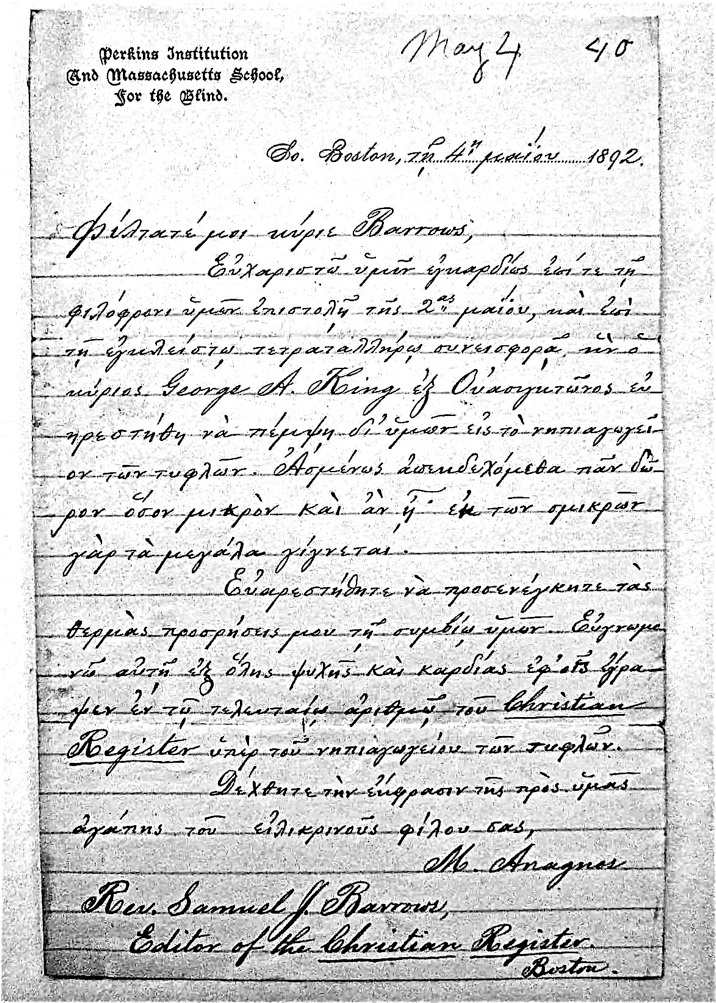 Perkins Institution
And Massachusetts School,
For the Blind.
May 4 40
So. Boston, τῇ 4ῃ μαΐου 1892.
Φίλτατέ μοι κύριε Barrows,
Εὐχαριστῶ ὑμῖν ἐγκαρδίως ἐπί τε τῇ
φιλόφρονι ὑμῶν ἐπιστολῇ τῆς 2ας μαΐου, καὶ ἐπὶ
τῇ ἐγκλείστῳ τετραταλλήρῳ συνεισφορᾷ, ἣν ὁ
κύριος George A. King ἐξ Οὐασιγκτῶνος εὐ
ηρεστήθη νὰ πέμψῃ δι' ὑμῶν εἰς τὸ νηπιαγωγεῖ
ον τῶν τυφλῶν. Ἀσμένως ἀπεκδεχόμεθα πᾶν δῶ
ρον ὅσον μικρὸν καὶ ἂν ᾖ· ἐκ τῶν σμικρῶν
γὰρ τὰ μεγάλα γίγνεται.
Εὐαρεστήθητε νὰ προσενέγκητε τὰς
θερμὰς προσρήσεις μου τῇ συμβίῳ ὑμῶν. Εὐγνωμο
νῶ αὐτῇ ἐξ ὅλης ψυχῆς καὶ καρδίας ἐφ' οἷς ἔγρα
ψεν ἐν τῷ τελευταίῳ ἀριθμῷ τοῦ Christian
Register ὑπὲρ τοῦ νηπιαγωγείου τῶν τυφλῶν.
Δέχθητε τὴν ἔκφρασιν τῆς πρὸς ὑμᾶς
ἀγάπης τοῦ εἰλικρινοῦς φίλου σας,
M. Anagnos
Rev. Samuel J. Barrows,
Editor of the Christian Register.
Boston.